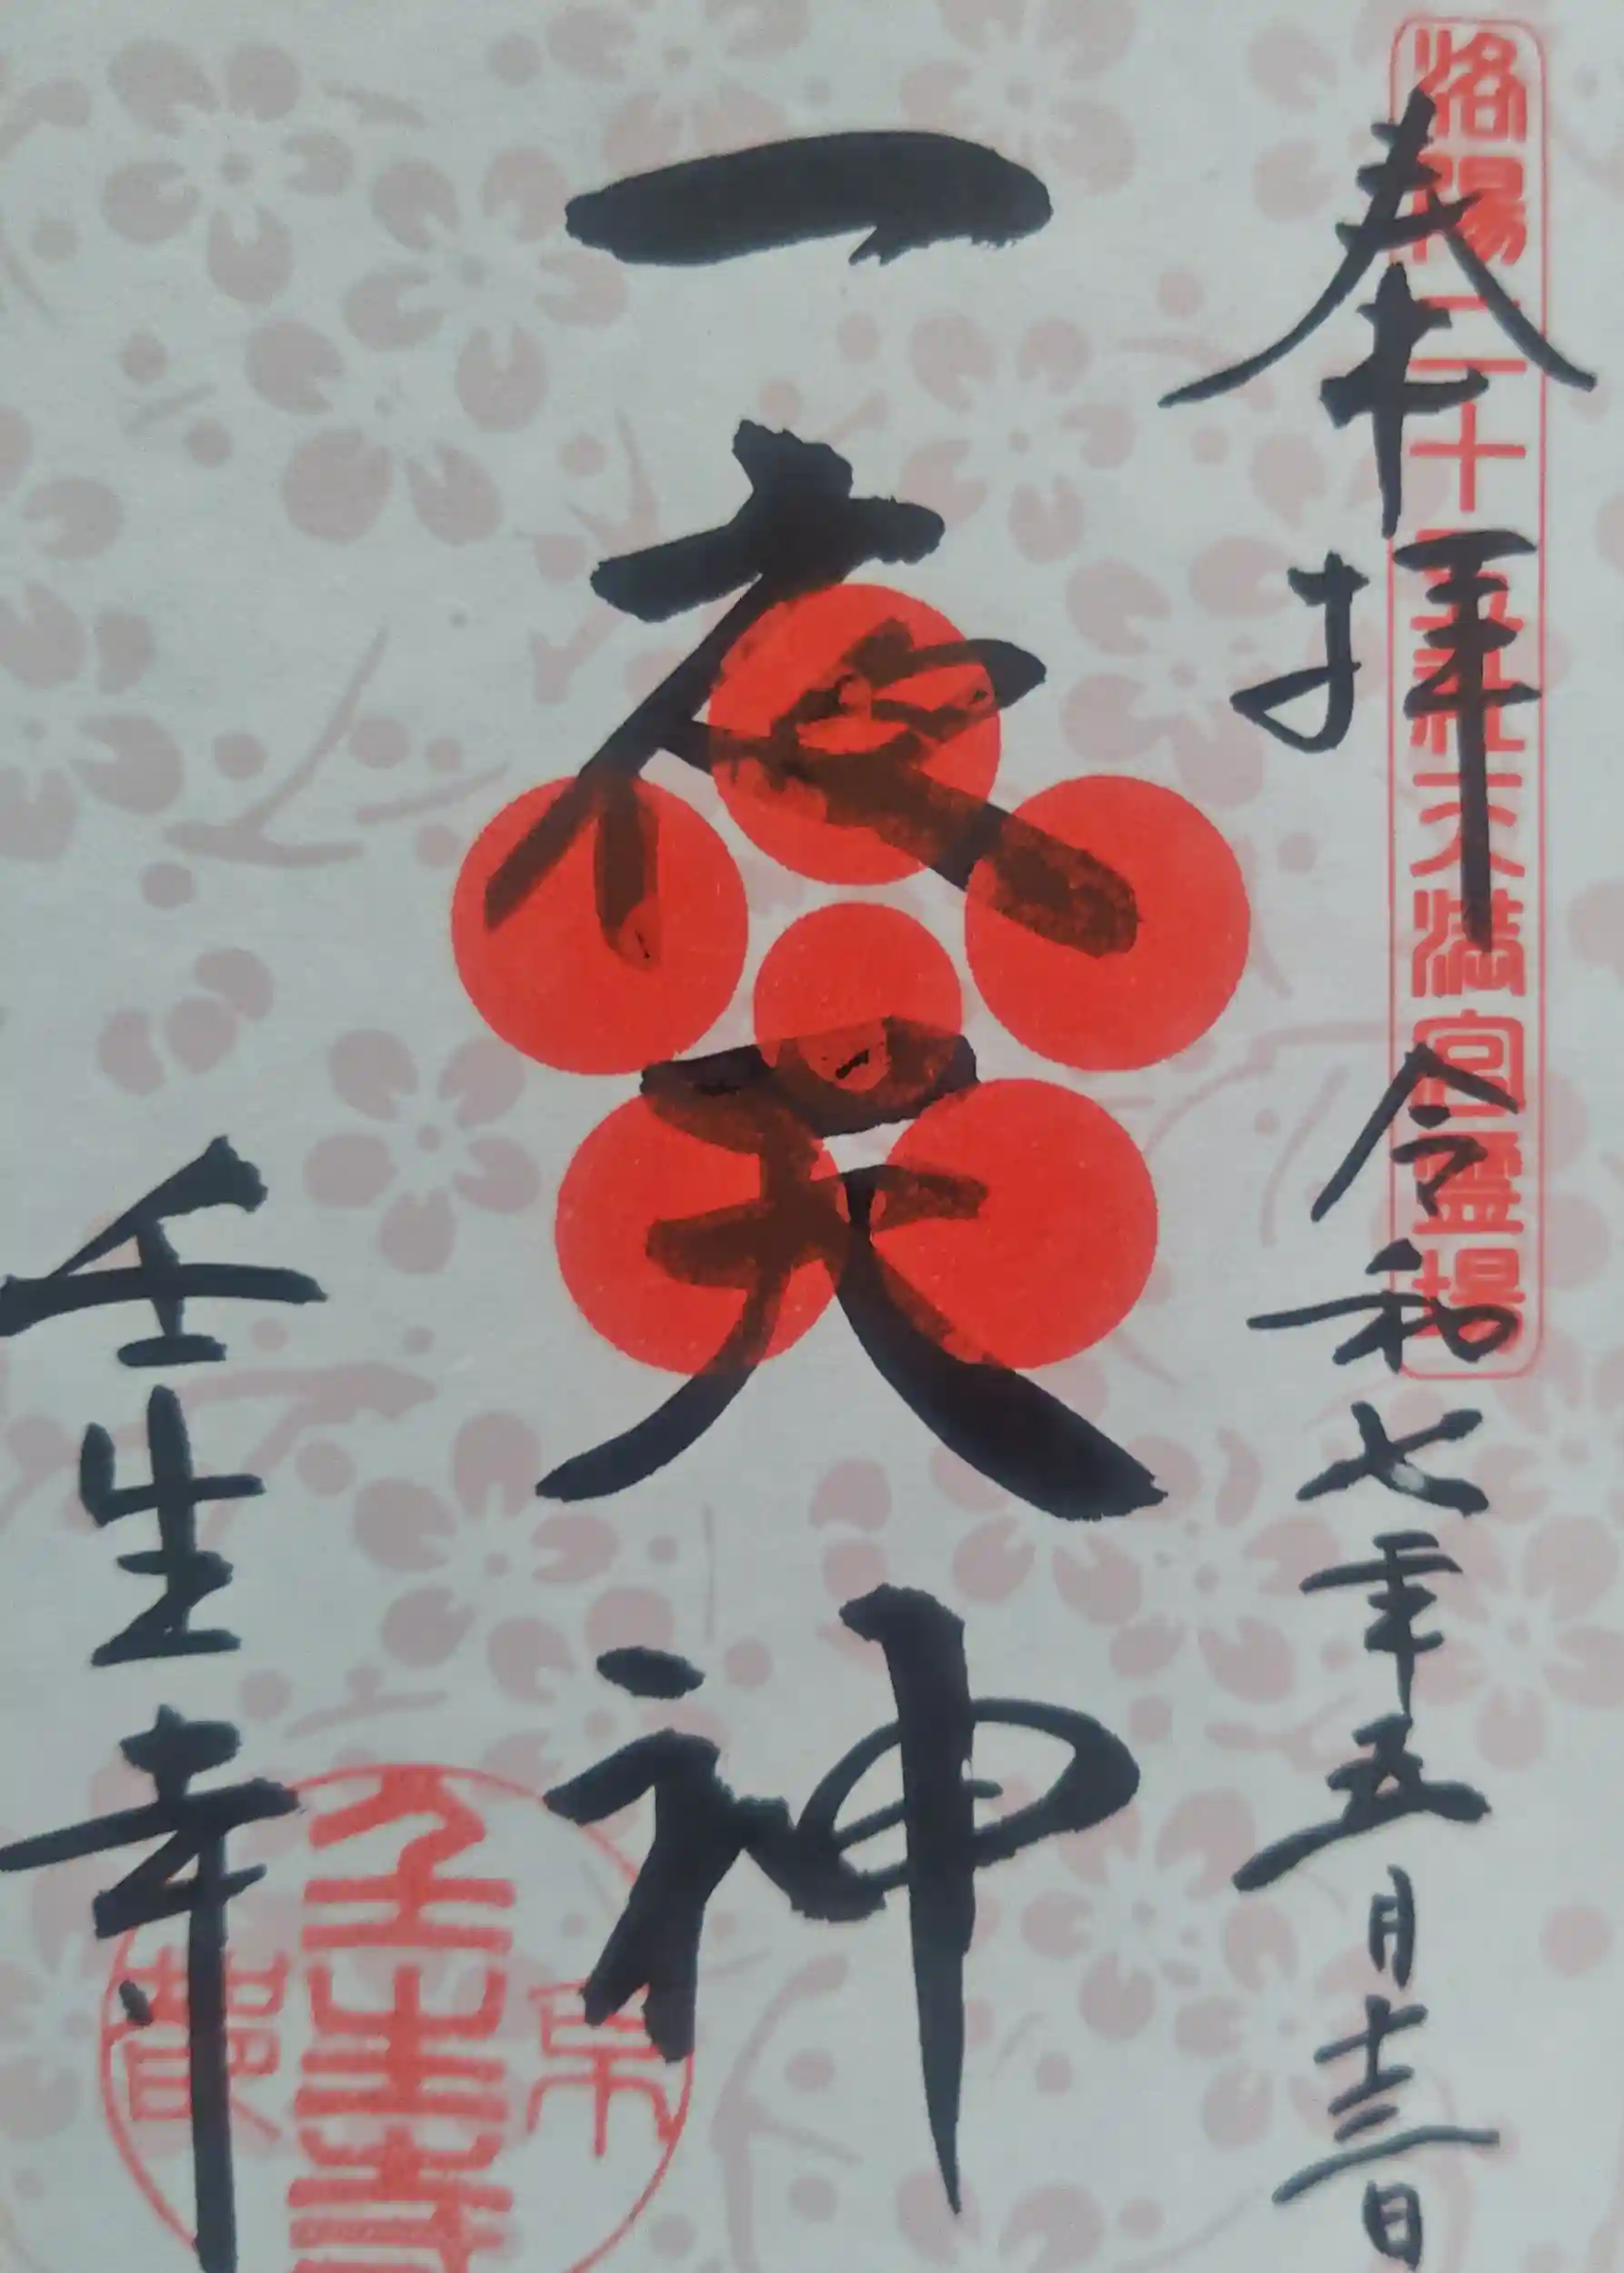 洛陽二十五社天満宮霊場
奉拝 令和七年五月十三日
一夜天神
壬生寺
京都
壬生寺